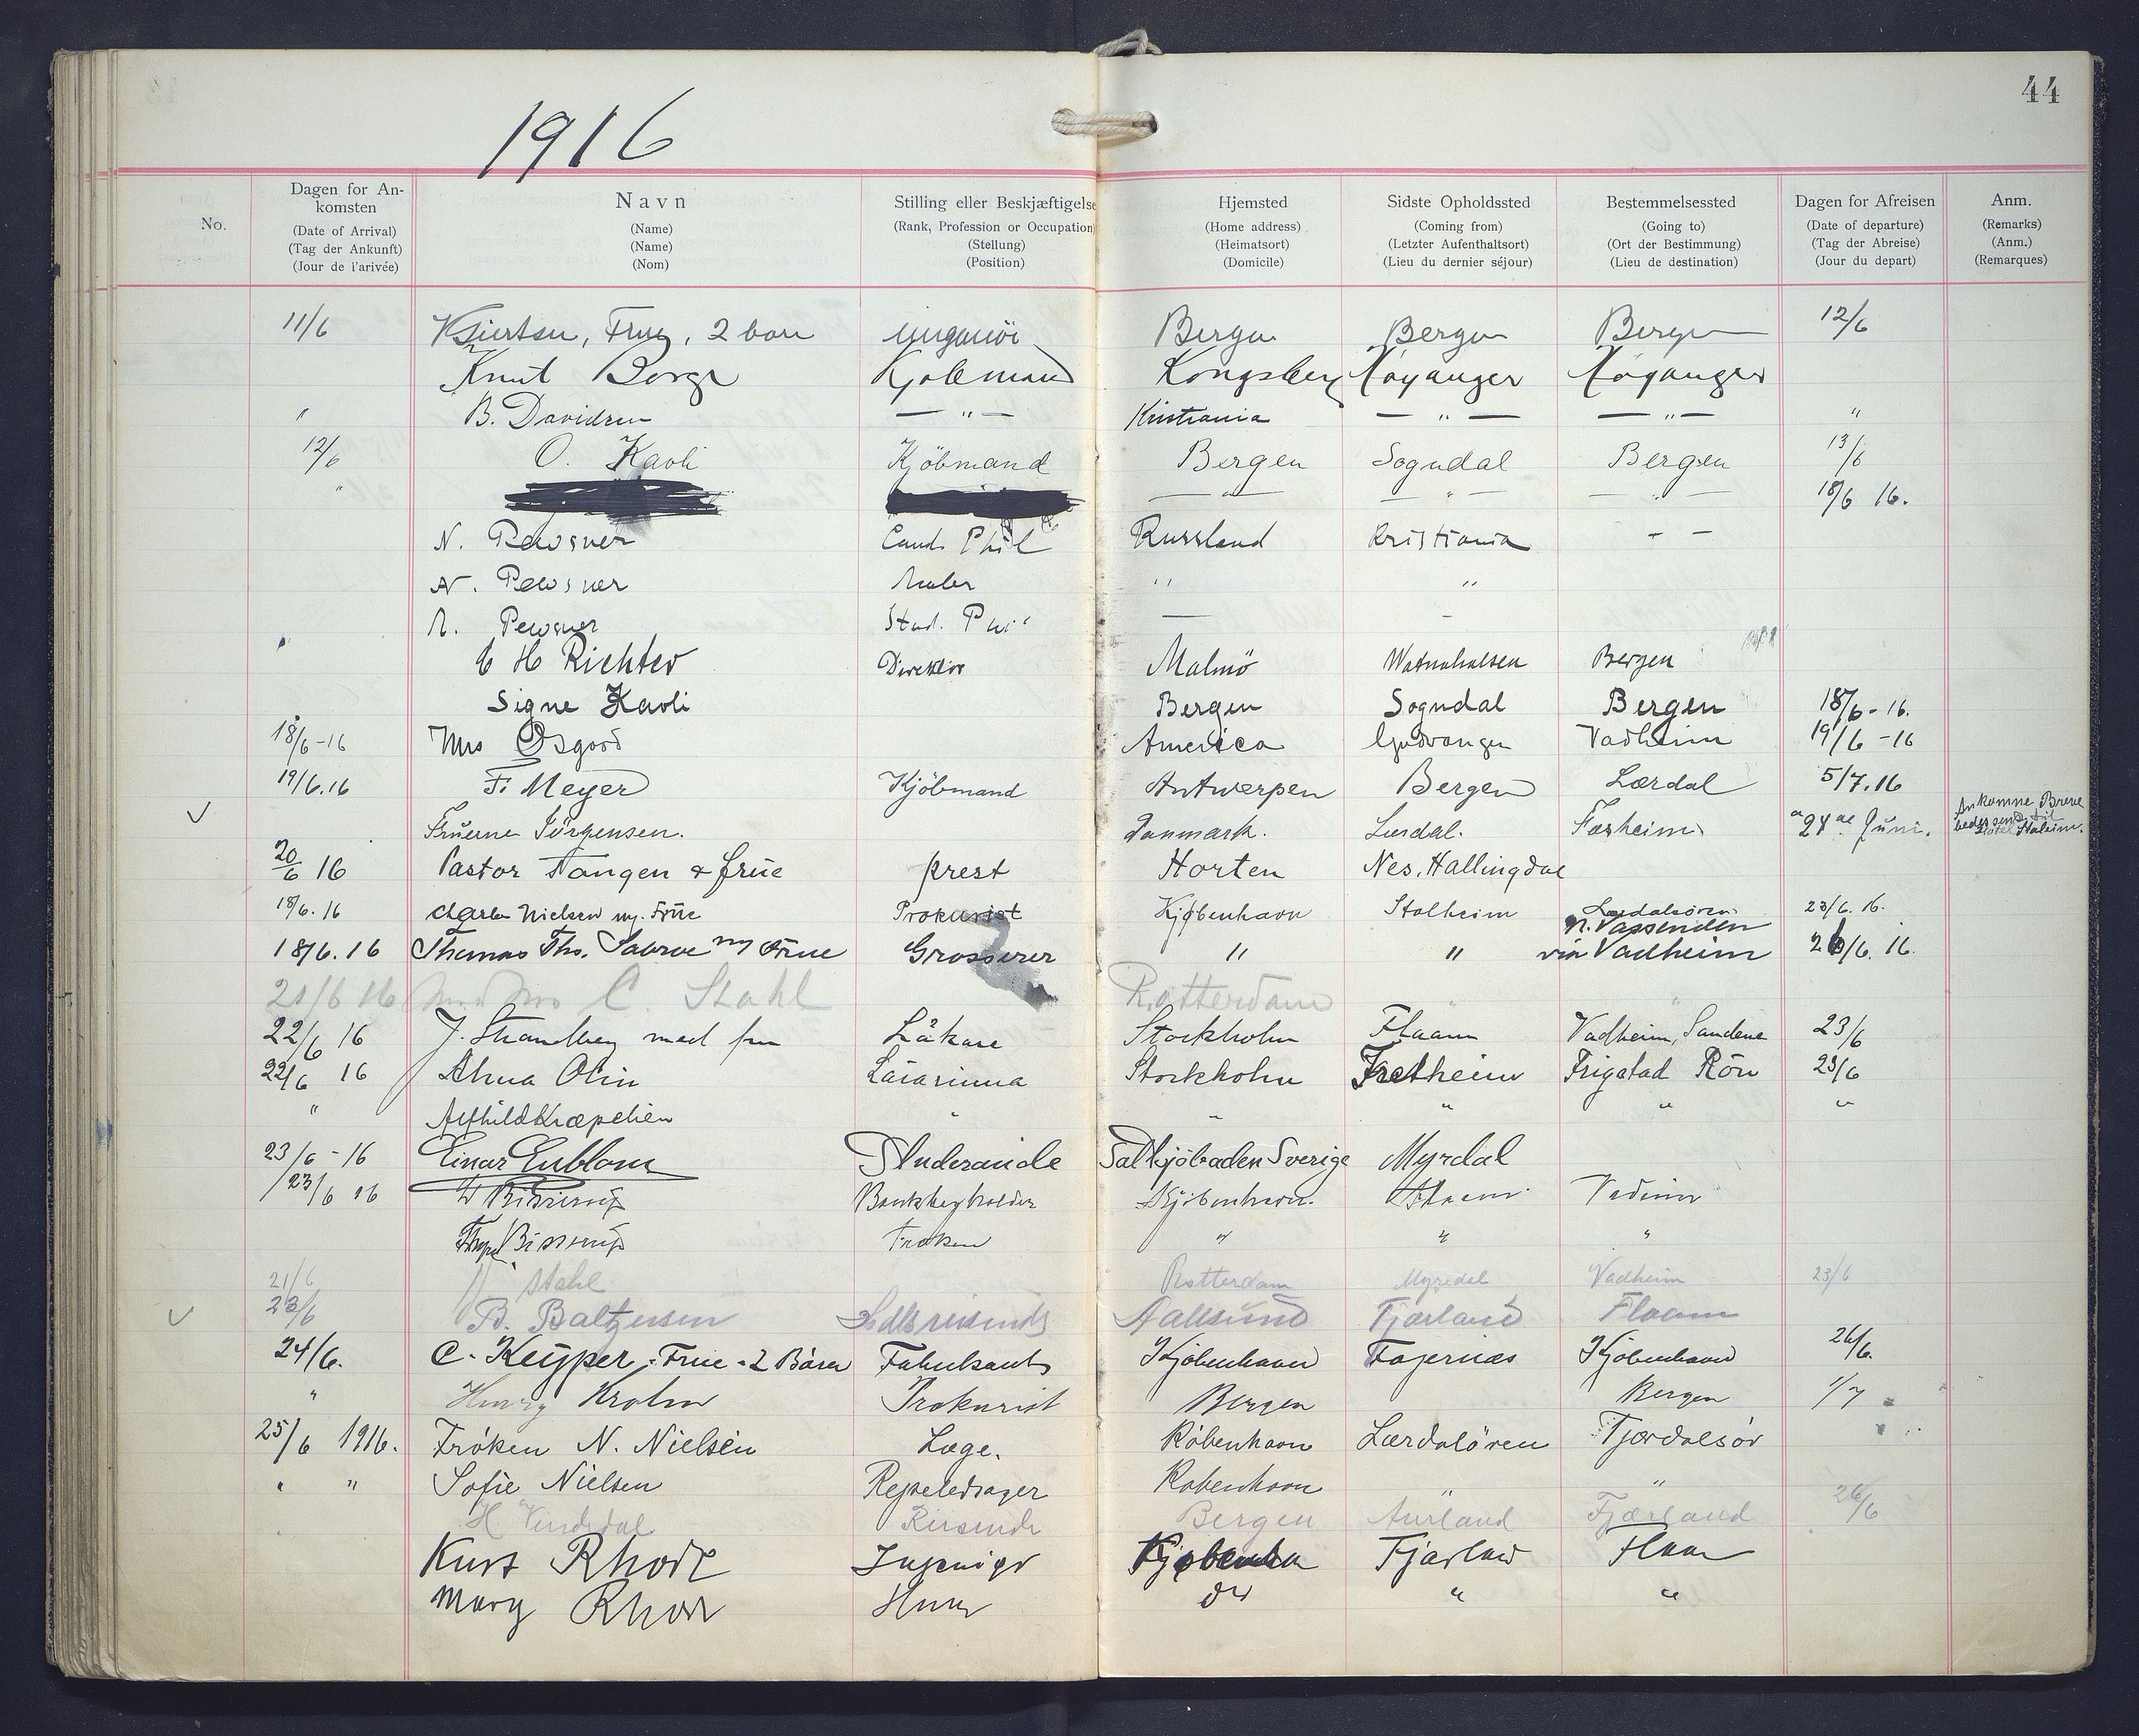 44
1916
No. Dagen for An-komsten (Date of Arrival) (Tag der Ankunft) (Jour de l'arivée) Navn (Name) (Name) (Nom) Stilling eller Beskjæftigelse (Rank, Profession or Occupation) (Stellung) (Position) Hjemsted (Home address) (Heimatsort) (Domicile) Sidste Opholdssted (Coming from) (Letzter Aufenthaltsort) (Lieu du dernier séjour) Bestemmelsessted (Going to) (Ort der Bestimmung) (Lieu de destination) Dagen for Afreisen (Date of departure) (Tag der Abreise) (Jour du depart) Anm. (Remarks) (Anm.) (Remarques)
11/6 Frue, 2 barn Bergen Bergen Bergen 12/6
Knut Borge Kjøbmand Kongsberg Høyanger Høyanger
" B. Davidsen — " — Kristiania — " — — " — "
12/6 O. Kavli Kjöbmand Bergen Sogndal Bergen 13/6
" — " — — " — — " — 18/6 16.
N. Pewsner Cand. Phil Russland Kristiania - -
N. Pewsner Maler " "
Pewsner Stud. Phil — -
C H Richter Direktör Malmö Watnahalsen Bergen
Signe Kavli Bergen Sogndal Bergen 18/6-16.
18/6-16 Mrs Osgood America Gudvangen Vadheim 19/6-16
19/6.16 F. Meyer Kjöbmand Antwerpen Bergen Lærdal 5/7.16
Fruerne Jörgensen. Danmark. Lærdal. Førheim 24de Juni. Ankomne Breve bedes sendt til Hotel Stalheim.
20/6 16 Pastor Tangen & frue prest Horten Nes, Hallingdal
18/6.16 Charles Nielsen m. Frue Prokurist Kjøbenhavn Stalheim Lærdalsören 23/6.16.
18/6.16 Thomas Ths. Sabroe m Frue Grosserer " " n. Vassenden via Vadheim 2 /6.16.
21/6 16 C. Stahl Rotterdam " "
22/6 16 J. Strandberg med fru Läkare Stockholm Flaam Vadheim, Sandene 23/6
22/6 16 Alma Olin Lärarinna Stockholm Fretheim Frigstad Rön 23/6
" Alfhild Kræpelien " " " " "
23/6-16 Einar Enblom Studerande Saltsjöbaden Sverige Myrdal
23/6 16 Bisserup Bankbogholder Kjöbenhavn. Flaam Vadheim
Bisserup Frøken " " "
21/6 Stahl Rotterdam Myrdal Vadheim 23/6
23/6 B. Baltzersen Aalesund Fjærland Flaam
24/6. C. Keyper, Frue - 2 Börn Fabrikant Kjöbenhavn Fagernæs Kjöbenhavn 26/6.
" Henry Krohn Prokurist Bergen Bergen 1/7
25/6 1916. Fröken N. Nielsen Læge. Köbenhavn Lærdalören
" " Sofie Nielsen Köbenhavn " "
H. Vindedal Reisende Bergen Aurland Fjærland 26/6
Kurt Rhode Ingeniör Kjøbenha Fjærland Flaam
Mary Rhode Do " "